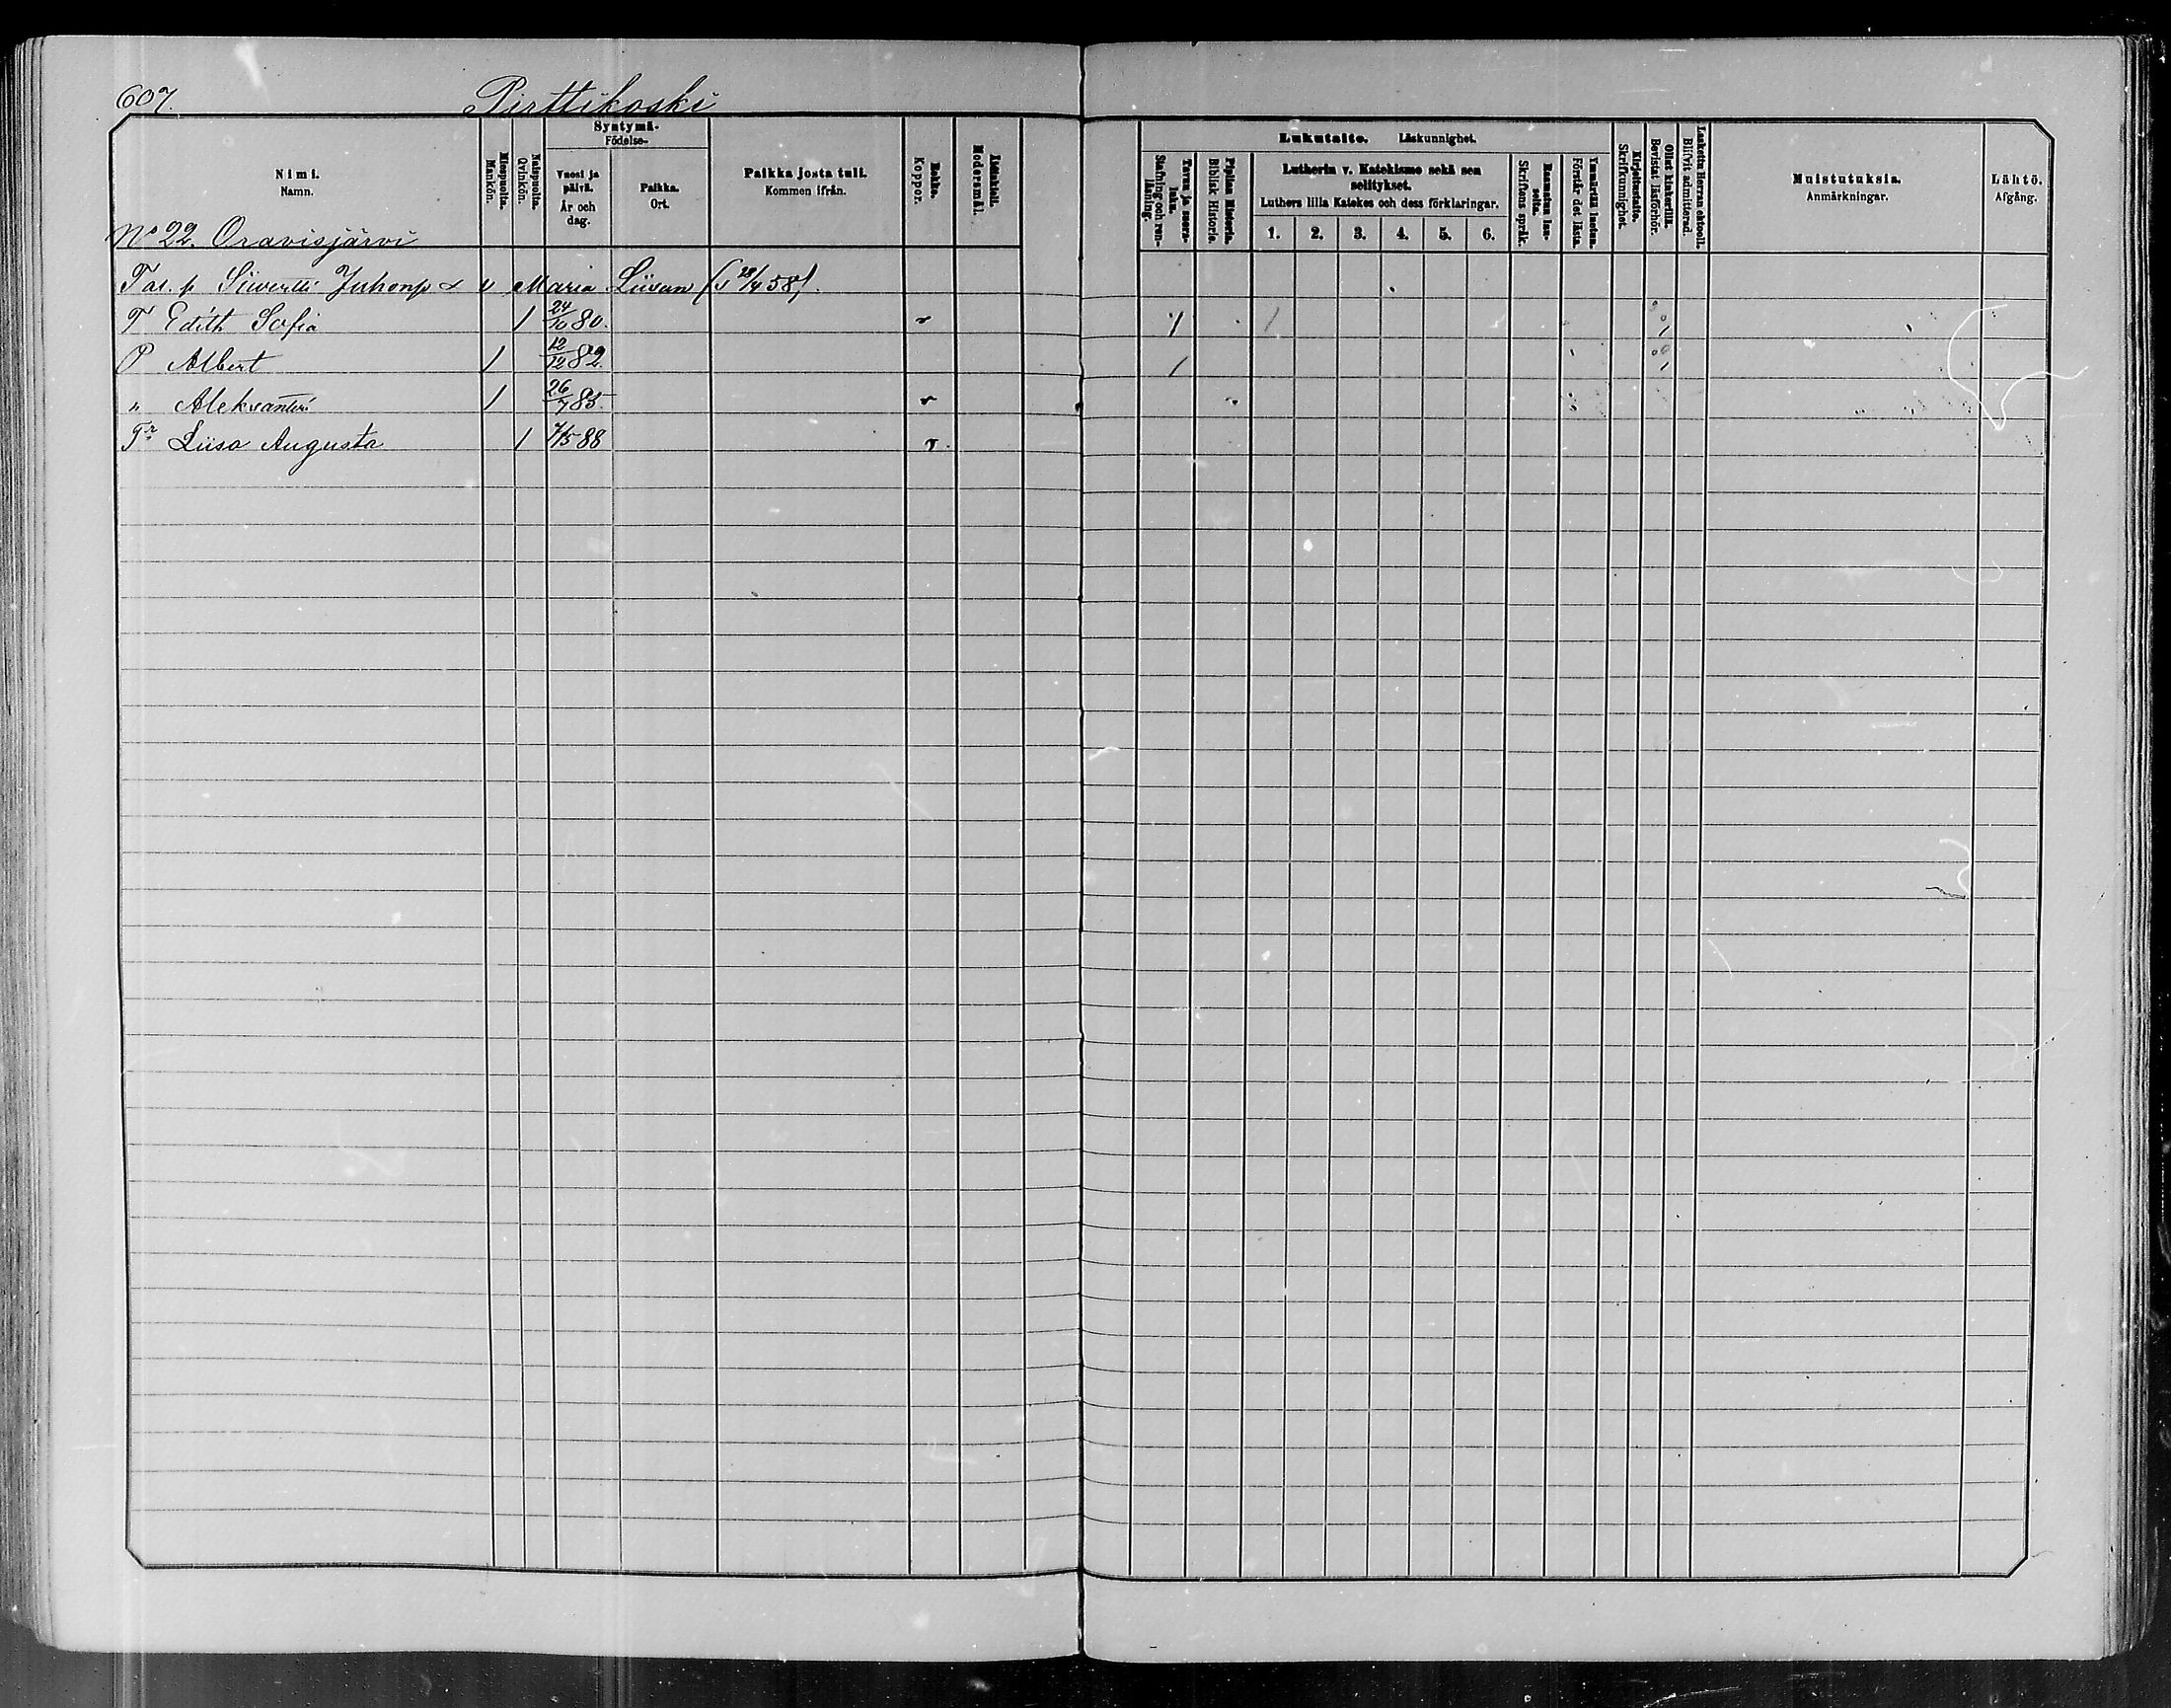 607. Pirttikoski
Nimi.
Namn.
Miespuolia.
Mankön.
Naispuolia.
Qvinkön.
Syntymä-
Födelse-
Vuosi ja päivä.
År och dag.
Paikka.
Ort.
Paikka josta tuli.
Kommen ifrån.
Rokko.
Koppor.
Äitinkieli.
Modersmål.
Lukutaito. Läskunnighet.
Tavaa ja suora-luku.
Stafning och ren-läsning.
Piplian Historia.
Biblisk Historie.
Lutherin v. Katekismo sekä sen
selitykset.
Luthers lilla Katekes och dess förklaringar.
1. 2. 3. 4. 5. 6.
Raamatun lau-seita.
Skriftens språk.
Ymmärtää luetun.
Förstår det lästa.
Kirjoitustaito.
Skrifkunnighet.
Ollut kinkerillä.
Bevistat läsförhör.
Laskettu Herran ehtooll.
Blifvit admitterad.
Muistutuksia.
Anmärkningar.
Lähtö.
Afgång.
No 22. Oravisjärvi
Tal. p Siivertti Juhonp & v Maria Liisan (s 28/4 58).
T Edith Sofia 1 24/10 80. r
P Albert 1 12/12 82.
" Aleksanteri 1 26/7 85. r
Tr Liisa Augusta 1 7/5 88 r.